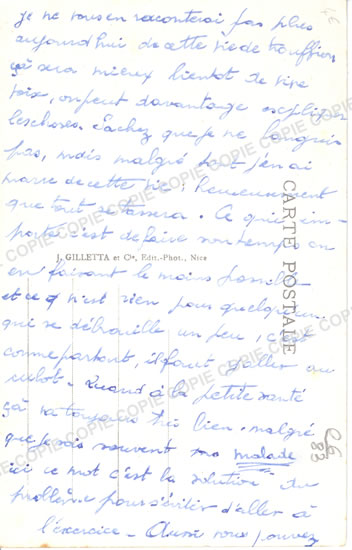 je ne vous en raconterai pas plus
aujourd'hui de cette vie de troufion
çà sera mieux bientôt de vive
voix, on peut davantage expliquer
les choses. Sachez que je ne languis
pas, mais malgré tout j'en ai
marre de cette vie ; heureusement
que tout passera. Ce qui im-
porte c'est de faire son temps en
en faisant le moins possible
et ce n'est rien pour quelqu'un
qui se débrouille un peu, c'est
comme partout, il faut y aller au
culot. Quand à la petite santé
çà va toujours très bien, malgré
que je sois souvent malade
ici ce mot c'est la solution du
problème pour s'éviter d'aller à
l'exercice - Aussi vous pouvez
J. GILLETTA et Cie, Edit.-Phot., Nice
CARTE POSTALE
COPIE COPIE COPIE COPIE